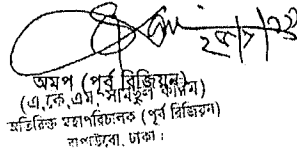 ২৫/১/২২
অমপ (পূর্ব রিজিয়ন)
(এ,কে,এম, সামছুল করিম)
অতিরিক্ত মহাপরিচালক (পূর্ব রিজিয়ন)
বাপাউবো, ঢাকা।